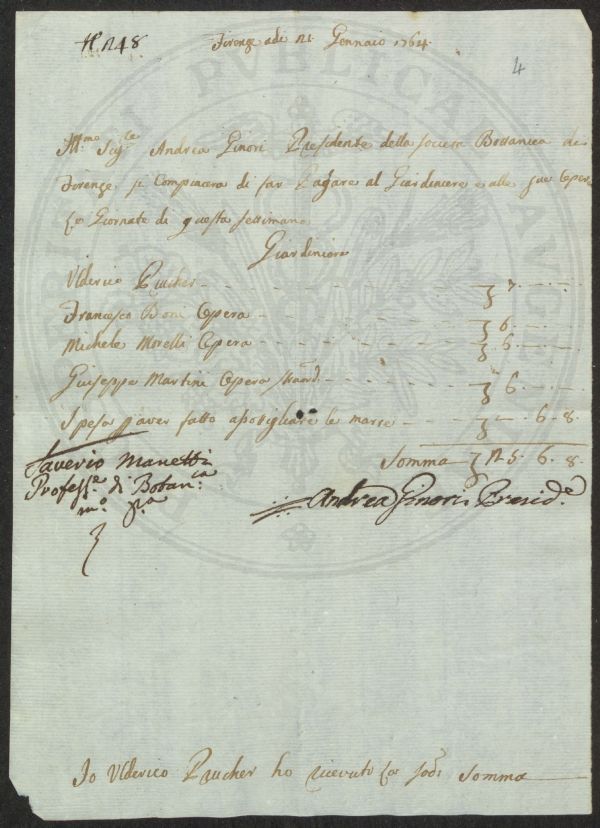 N° 248
Firenze adi 21 Gennaio 1764
4
Ill.mo Sig.re Andrea Ginori Presidente della società Bottanica di
Firenze si Compiacera di far Pagare al Giardiniere e alle sue Opere
Giornate di questa settimana
Giardiniere
Ulderico Prucher 7
Francesco Boni Opera 6
Michele Morelli Opera 6
Giuseppe Martini Opera 6
Spesa aver fatto le 6. 8
Somma 25. 6. 8.
Saverio Manetti
Profess.e di Botan.ca
m.o p.a
Andrea Ginori Presid.e
Io Ulderico Prucher ho ricevuto Somma